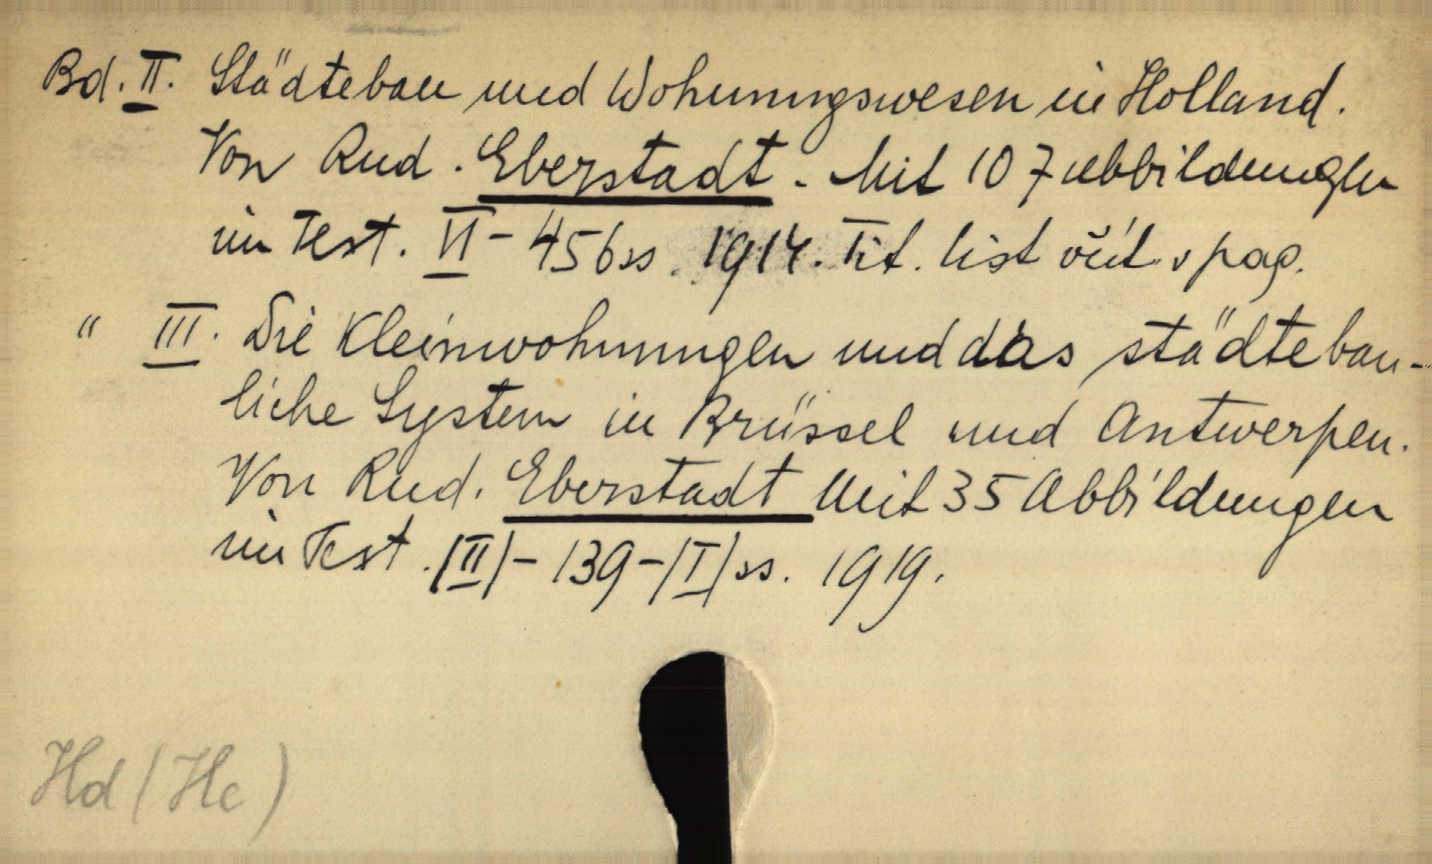 Bd. II. Städtebau und Wohnungswesen in Holland.
Von Rud. Eberstadt. Mit 107 Abbildungen
im Text. VI - 456 ss. 1914. Tit. list včít. v pag.
" III. Die Kleinwohnungen und das städtebau-
liche System in Brüssel und Antwerpen.
Von Rud. Eberstadt Mit 35 Abbildungen
im Text. (II) - 139 - (I) ss. 1919.
Hd (Hc)